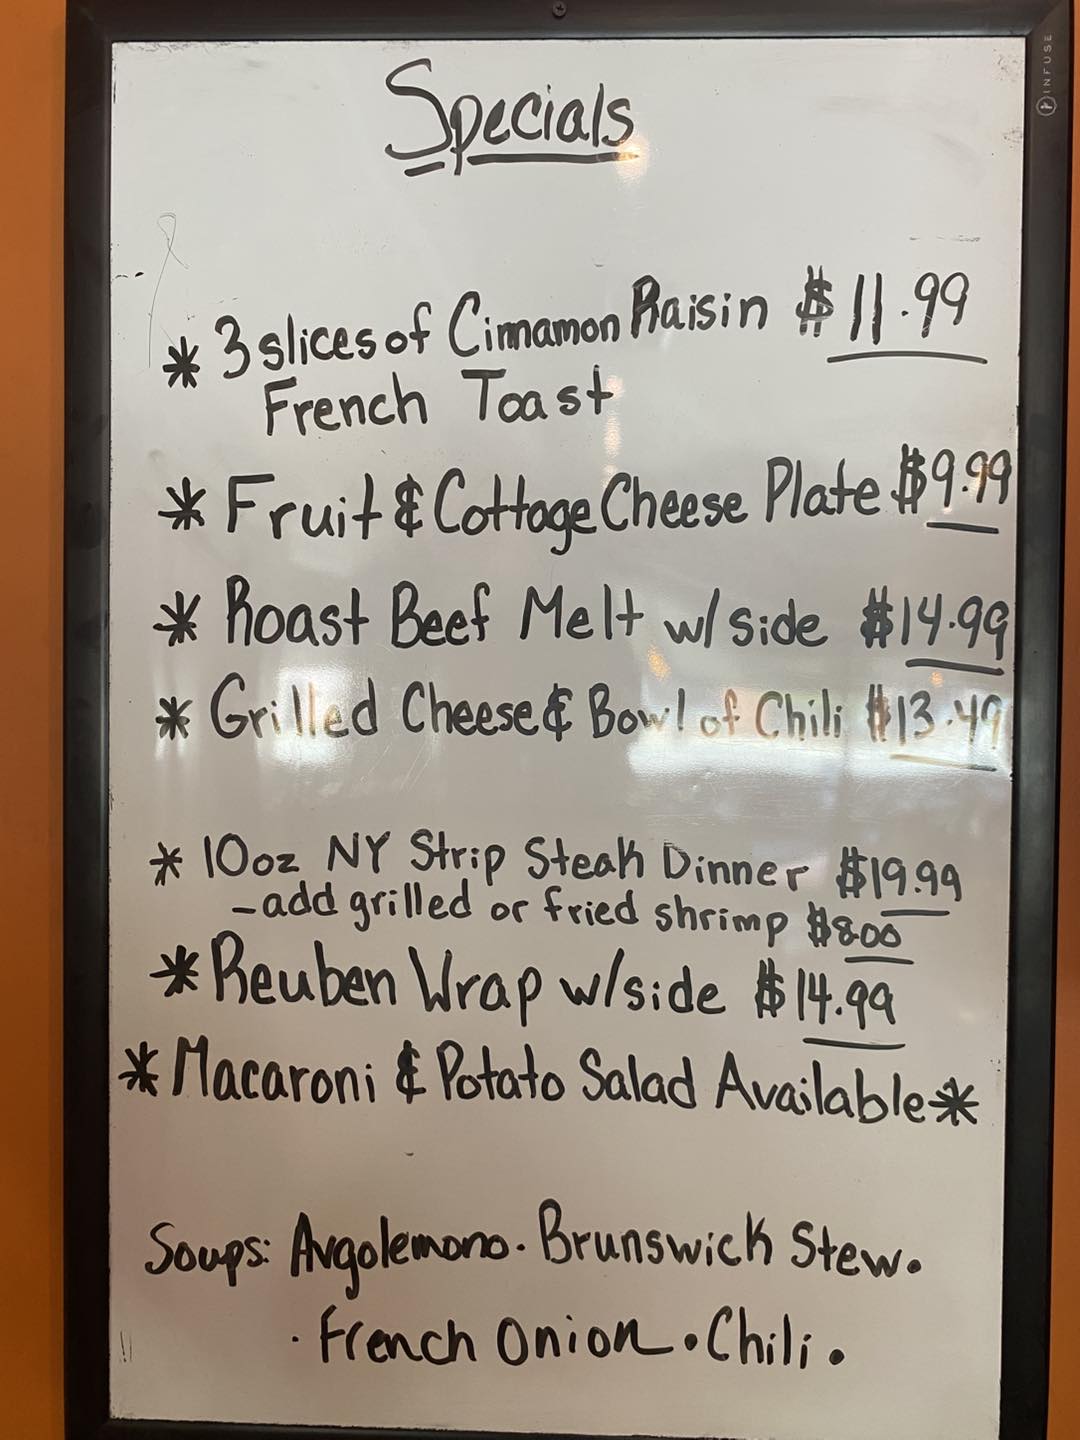 INFUSE
Specials
* 3 slices of Cinnamon Raisin $11.99
French Toast
* Fruit & Cottage Cheese Plate $9.99
* Roast Beef Melt w/ side $14.99
* Grilled Cheese & Bowl of Chili $13.49
* 10oz NY Strip Steak Dinner $19.99
- add grilled or fried shrimp $8.00
* Reuben Wrap w/side $14.99
* Macaroni & Potato Salad Available *
Soups: Avgolemono · Brunswick Stew ·
· French Onion · Chili ·